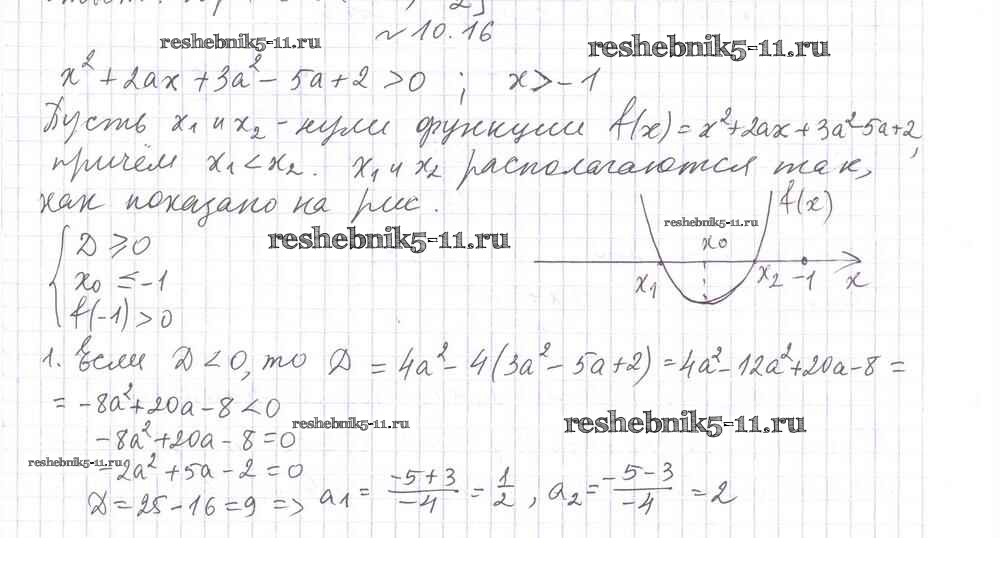 №10.16
reshebnik5-11.ru
reshebnik5-11.ru
x² + 2ax + 3a² - 5a + 2 > 0 ; x > -1
Пусть x₁ и x₂ - нули функции f(x) = x² + 2ax + 3a² - 5a + 2,
причём x₁ < x₂. x₁ и x₂ располагаются так,
как показано на рис.
f(x)
reshebnik5-11.ru
x₀
x₁ x₂ -1 x
reshebnik5-11.ru
D ≥ 0
x₀ ≤ -1
f(-1) > 0
1. Если D < 0, то D = 4a² - 4(3a² - 5a + 2) = 4a² - 12a² + 20a - 8 =
= -8a² + 20a - 8 < 0
reshebnik5-11.ru
reshebnik5-11.ru
-8a² + 20a - 8 = 0
reshebnik5-11.ru
-2a² + 5a - 2 = 0
D = 25 - 16 = 9 => a₁ = (-5+3)/(-4) = 1/2, a₂ = (-5-3)/(-4) = 2